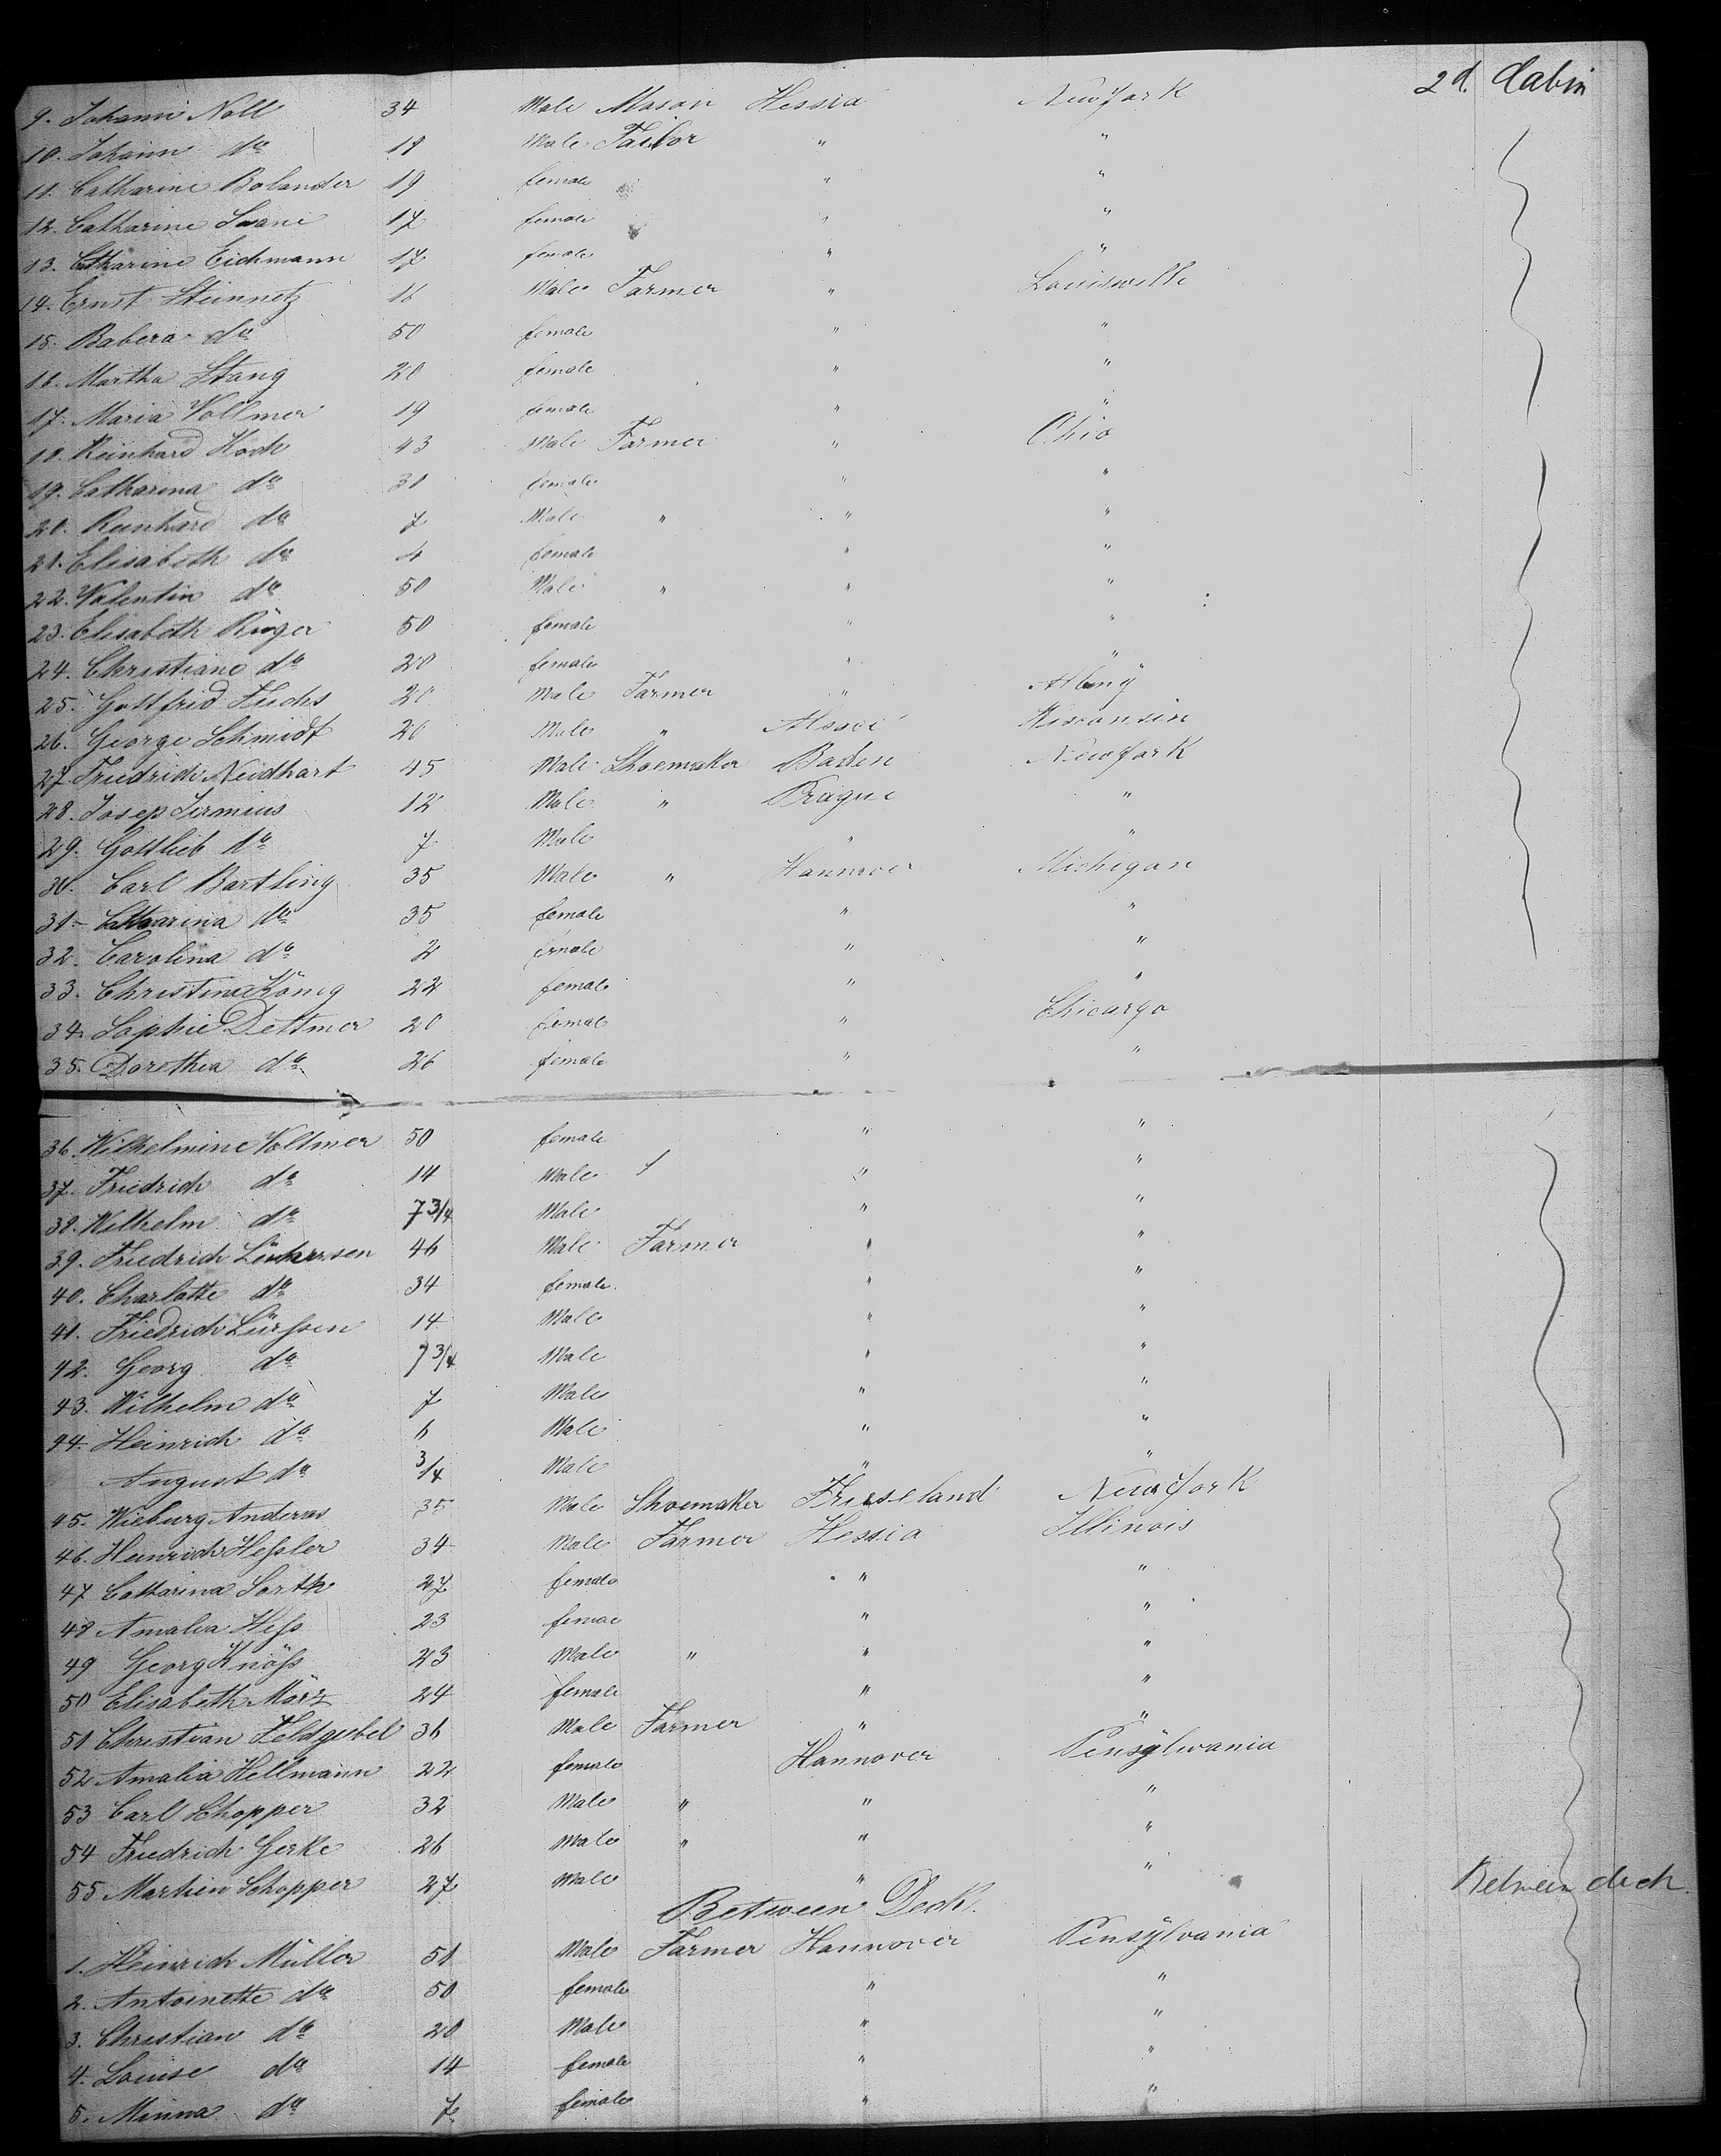 2d. Cabin
9. Johann Noll 34 Male Mason Hessia New York
10. Johann do 18 Male Tailor " "
11. Catharine Bolander 19 female " "
12. Catharine 17 female " "
13. Catharine Eichmann 17 female " "
14. Ernst Steinmetz 16 Male Farmer " Louiswille
15. Babera do 50 female " "
16. Martha Stang 20 female " "
17. Maria Vollmer 19 female " "
18. Reinhard Koch 43 Male Farmer " Ohio
19. Catharina do 31 female " "
20. Reinhard do 7 Male " " "
21. Elisabeth do 4 female " "
22. Valentin do 50 Male " " "
23. Elisabeth Rüger 50 female " "
24. Christiane do 20 female " "
25. Gottfrid Fuchs 20 Male Farmer " Albny
26. George Schmidt 20 Male " Alsace Wisconsin
27. Friedrich Neidhart 45 Male Shoemaker Baden New York
28. Josep 12 Male " Prague "
29. Gottlieb do 7 Male " "
30. Carl Bartling 35 Male " Hannover Michigan
31. Catharina do 35 female " "
32. Carolina do 2 female " "
33. Christina König 22 female " "
34. Sophie Dettmer 20 female " Chicargo
35. Dorethea do 26 female " "
36. Wilhelmine Voltmer 50 female " "
37. Friedrich do 14 Male " "
38. Wilhelm do 7 3/4 Male " "
39. Friedrich 46 Male Farmer " "
40. Charlotte do 34 female " "
41. Friedrich Lürssen 14 Male " "
42. Georg do 7 3/4 Male " "
43. Wilhelm do 7 Male " "
44. Heinrich do 6 Male " "
August do 3/4 Male " "
45. Wieburg Anderas 35 Male Shoemaker Frieseland New York
46. Heinrich Hessler 34 Male Farmer Hessia Illinois
47 Catharina Sorth 27 female " "
48 Amalia Hess 23 femae " "
49 Georg Knöss 23 Male " " "
50 Elisabeth März 24 female " "
51 Christian Feldgiebel 36 Male Farmer " "
52 Amalia Hellmann 22 female Hannover Pensylwania
53 Carl Schopper 32 Male " " "
54 Friedrich Gerke 26 Male " " "
55 Martin Schopper 27 Male " "
Between deck
Between Deck.
1. Heinrich Müller 51 Male Farmer Hannover Pensylvania
2. Antoinette do 50 female " "
3. Christian do 20 Male " "
4. Louise do 14 female " "
5. Minna do 7 female " "